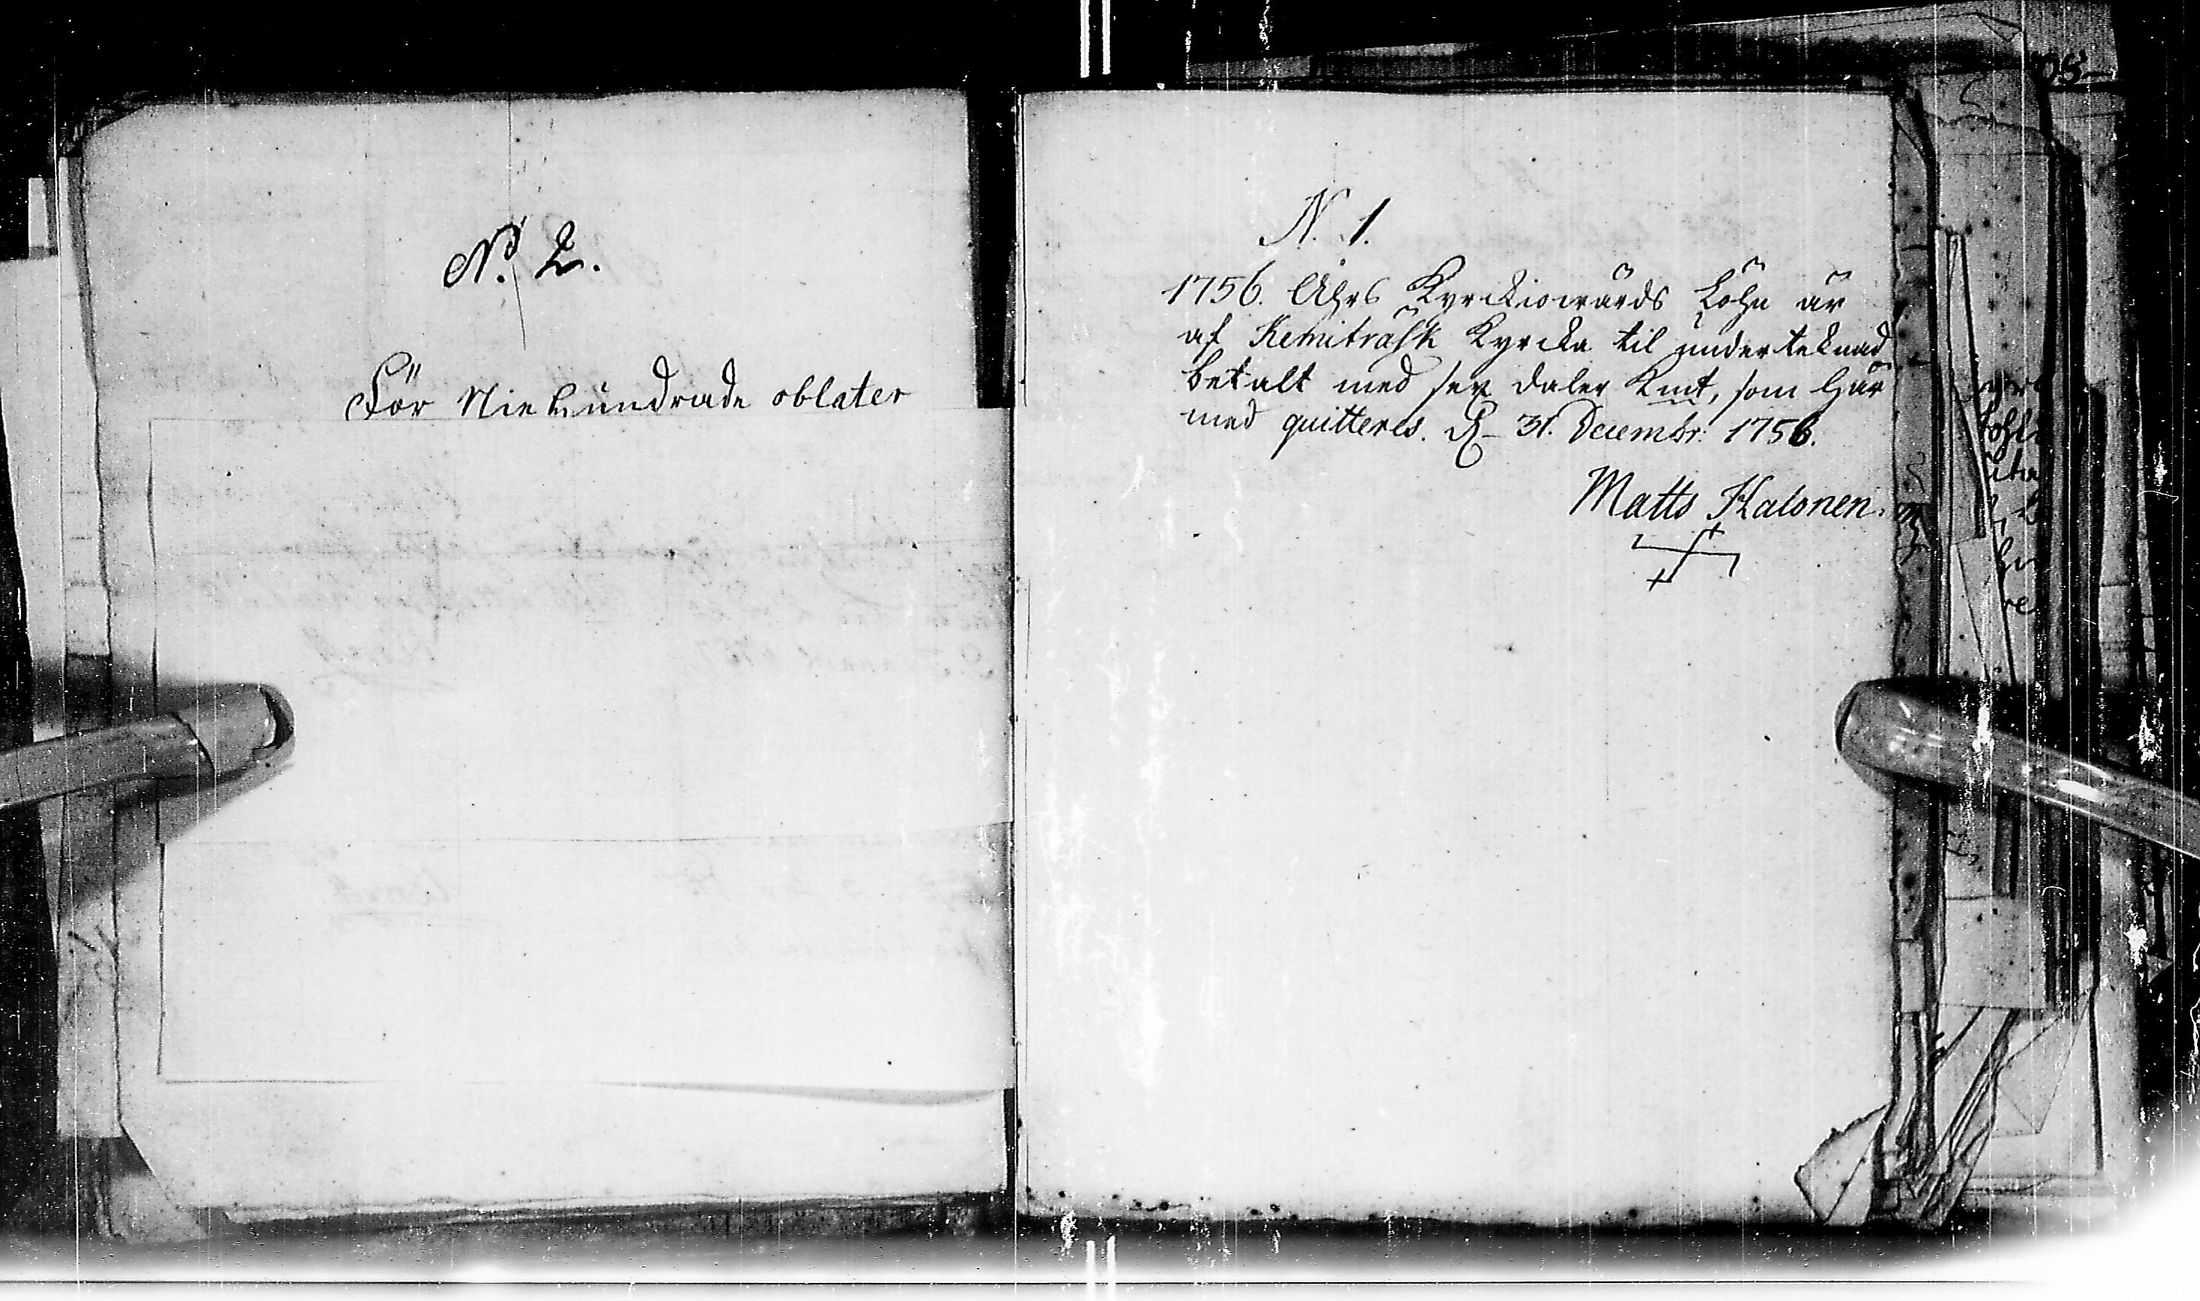 N.º 2.
För Niehundrade oblater
N. 1.
1756. Åhrs Kyrckiowärds Löhn är
af Kemiträsk Kyrcka til underteknad
betalt med sex daler Kmt, som här
med quitteres. D. 31. Decembr: 1756.
Matts Kalonen.